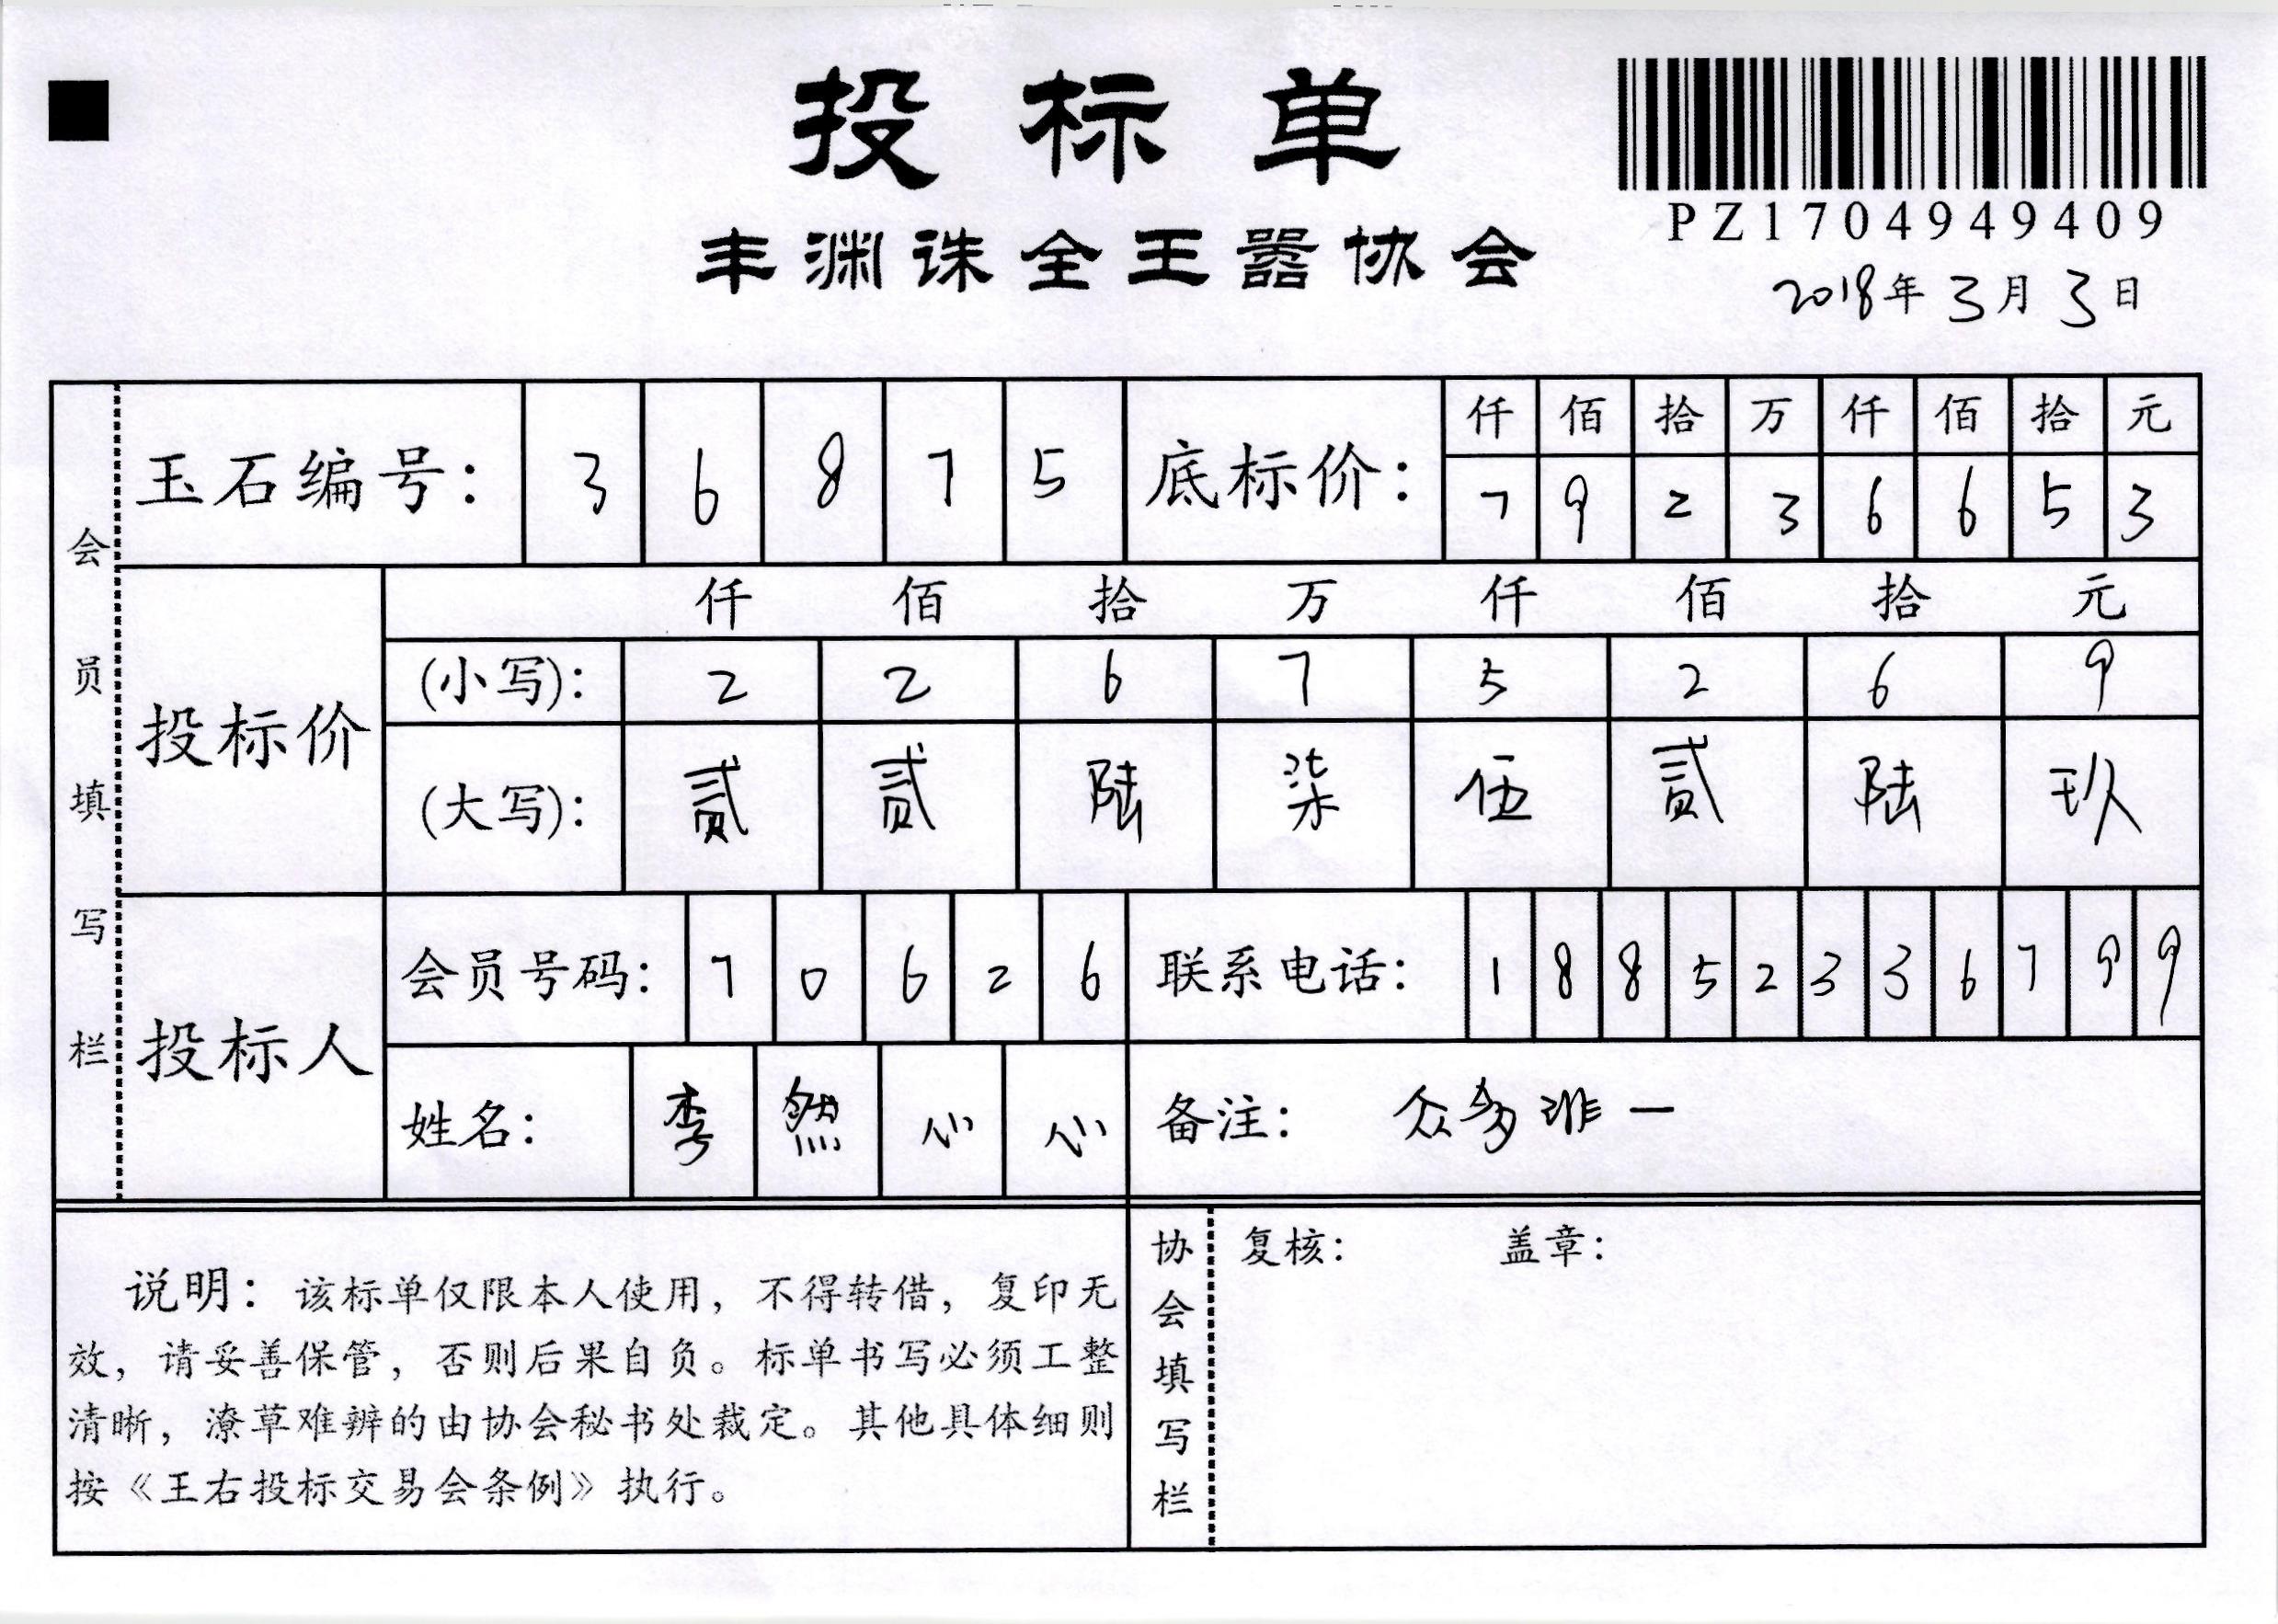 投标单
丰渊诛全王嚣协会
PZ1704949409
2018年3月3日
会员填写栏
玉石编号: 3 6 8 7 5
底标价: 仟 佰 拾 万 仟 佰 拾 元
7 9 2 3 6 6 5 3
投标价
仟 佰 拾 万 仟 佰 拾 元
(小写): 2 2 6 7 5 2 6 9
(大写): 贰 贰 陆 柒 伍 贰 陆 玖
投标人
会员号码: 7 0 6 2 6
联系电话: 1 8 8 5 2 3 3 6 7 9 9
姓名: 李 然 心 心
备注: 众多 一
说明: 该标单仅限本人使用，不得转借，复印无
效，请妥善保管，否则后果自负。标单书写必须工整
清晰，潦草难辨的由协会秘书处裁定。其他具体细则
按《王右投标交易会条例》执行。
协会填写栏
复核: 盖章: